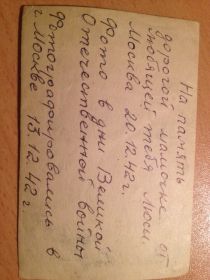 На память
дорогой мамочке от
любящей тебя Люси
Москва 20.12.42г.
Фото в дни Великой
Отечественной войны
Фотографировались в
г. Москве 13.12.42г.